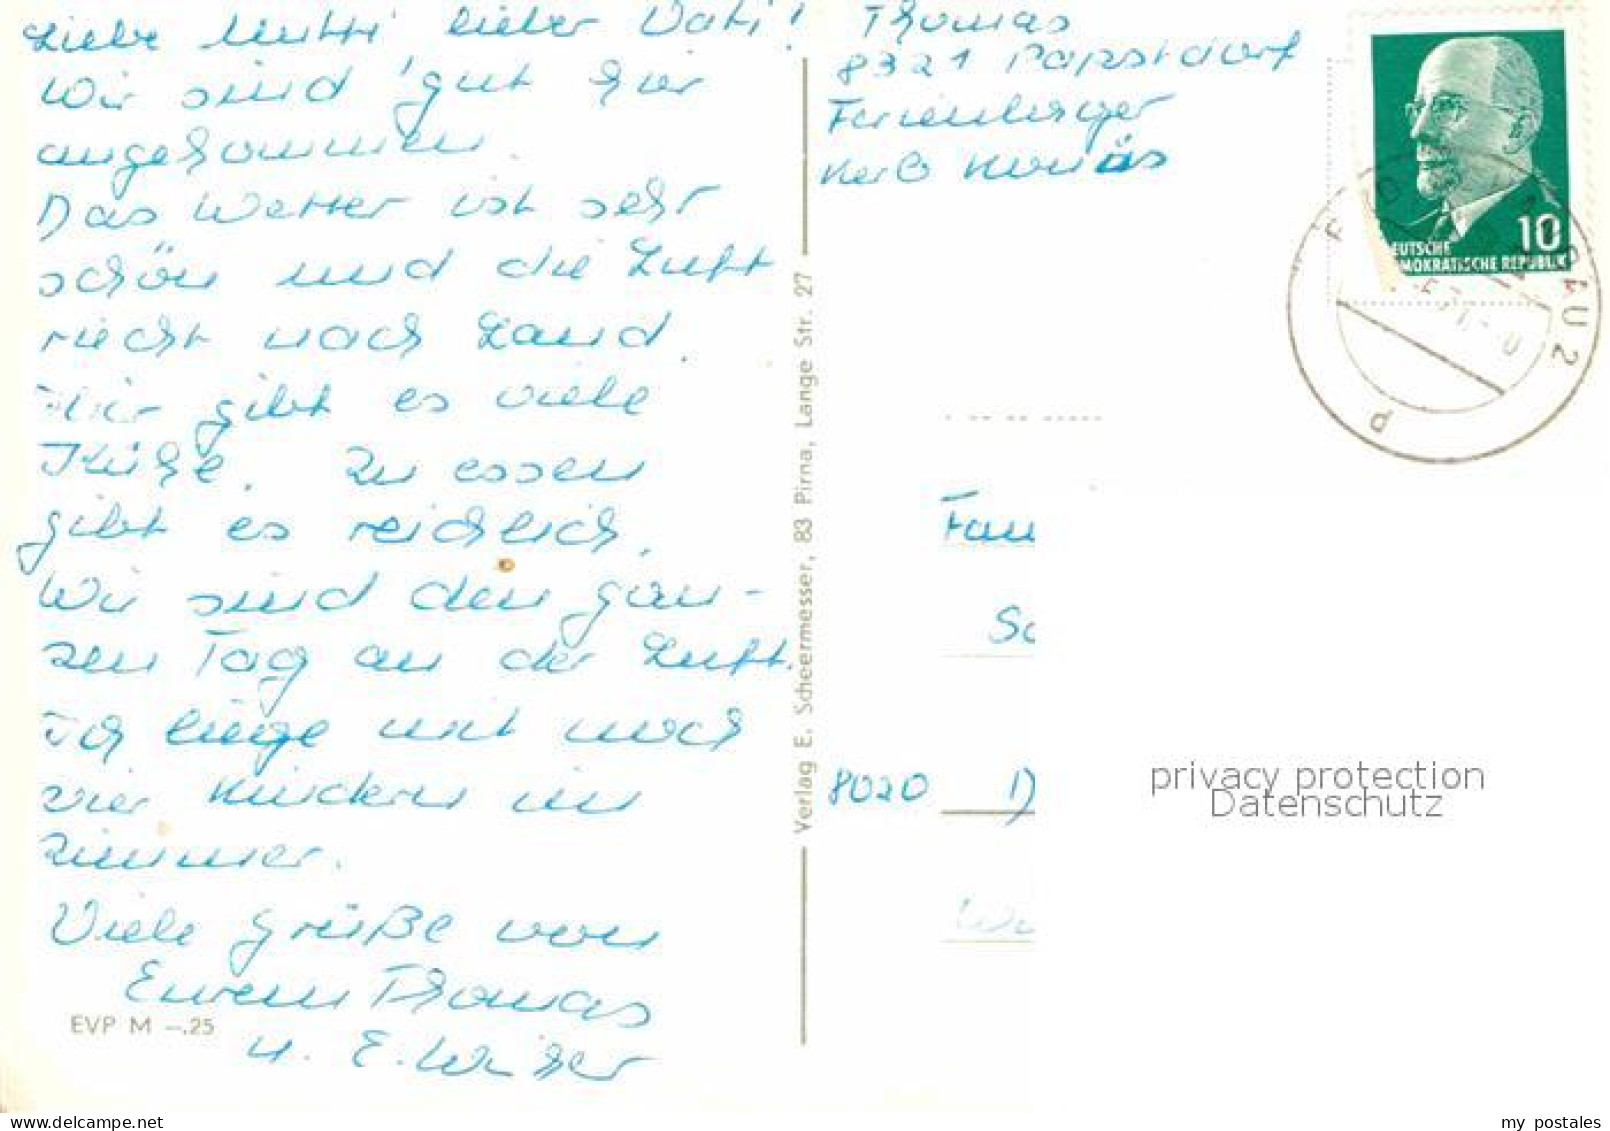 Liebe Mutti, lieber Vati!
Wir sind gut hier
angekommen.
Das Wetter ist sehr
schön und die Luft
riecht nach Land.
Hier gibt es viele
Kühe. Zu essen
gibt es reichlich.
Wir sind den gan-
zen Tag an der Luft.
Ich liege mit noch
vier Kindern im
Zimmer.
Viele Grüße von
Eurem Thomas
u. E.
EVP M –.25
Verlag E. Scheermesser, 83 Pirna, Lange Str. 27
Thomas
8321 Papstdorf
Ferienlager
10
DEUTSCHE
DEMOKRATISCHE REPUBLIK
Fam
Sc
8020 D
privacy protection
Datenschutz
my postales